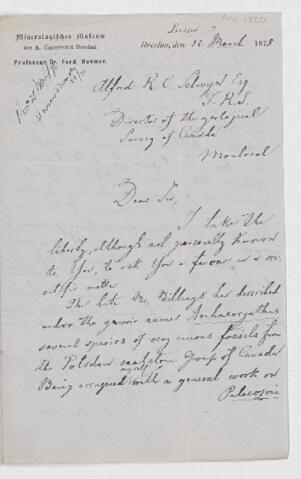 ACC. 1520
Mineralogisches Museum
der K. Universität Breslau
Breslau, den 12 March 1878
Professor Dr. Ferd Roemer.
Alfred R. C. Selwyn Esq
F. R. S.
Director of the geological
Survey of Canada
Montreal
Dear Sir,
I take the
liberty, although not personally known
to You, to ask You a favour in a sci-
entific matter
The late Mr. Billings has described
under the generic name Archaeocyathus
several species of very curious fossils from
the Potsdam sandstone Group of Canada
Being occupied myself with a general work on
Palaeozoic